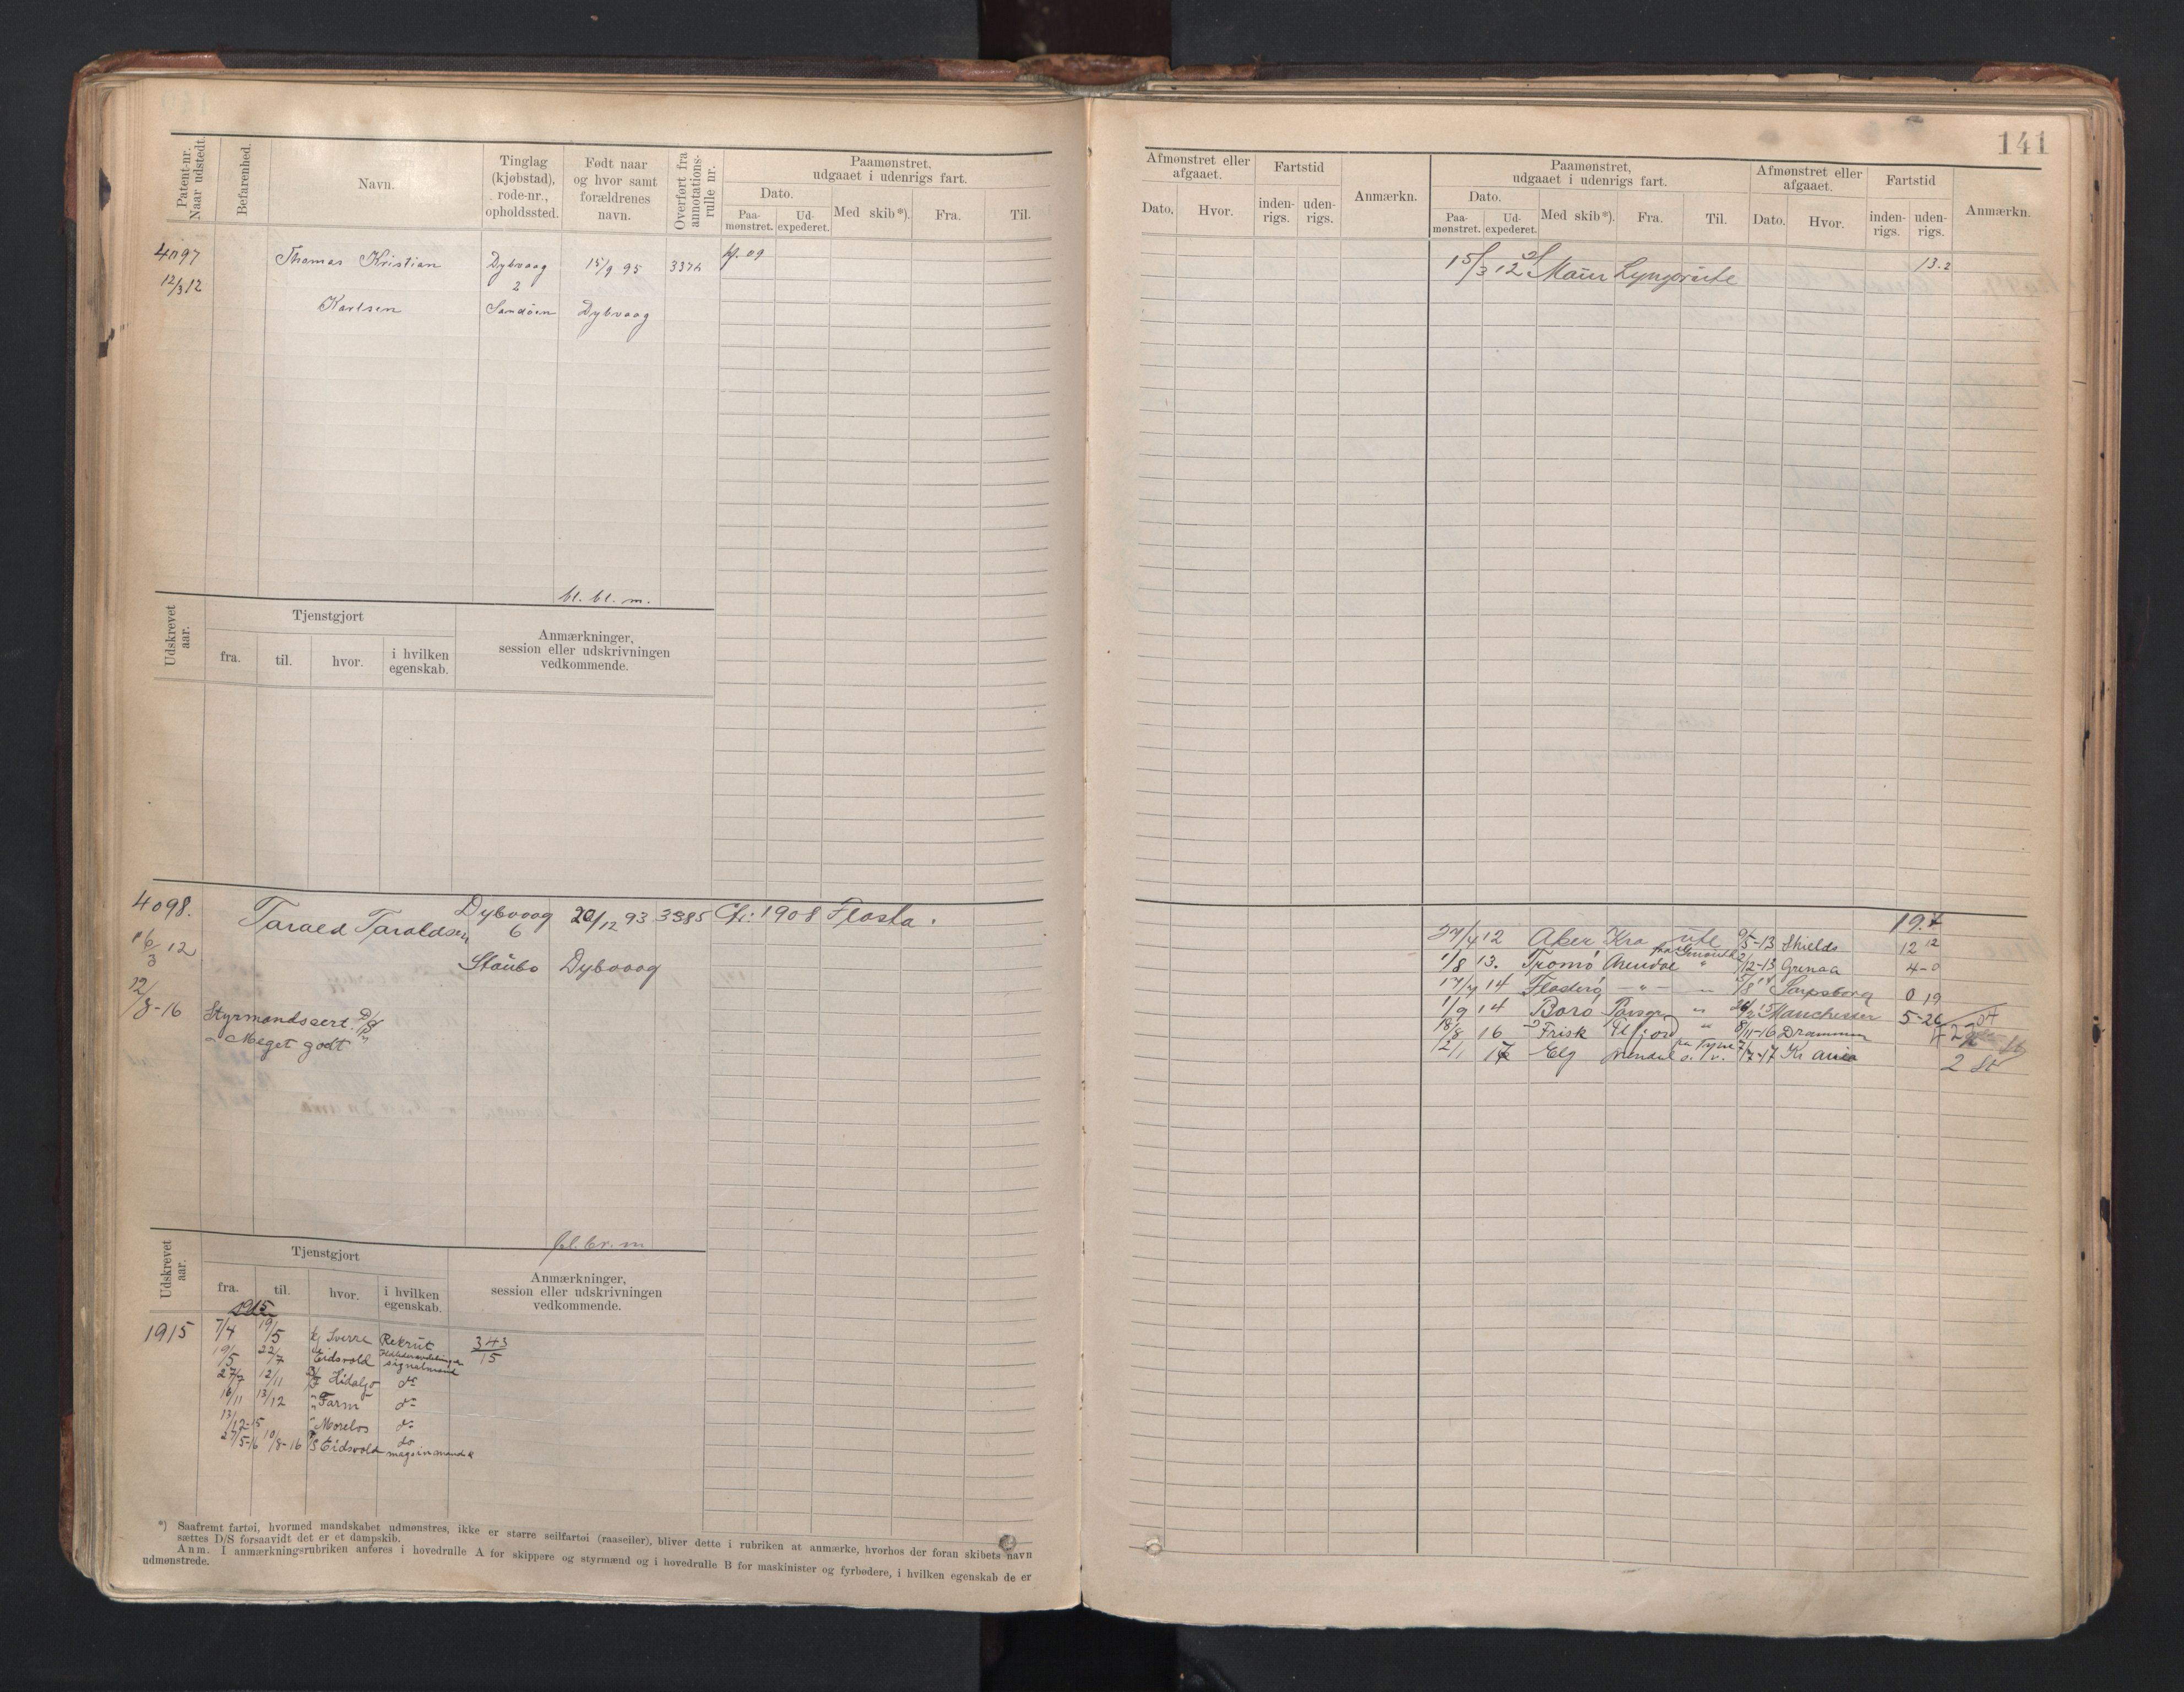 141
Patent-nr. Naar udstedt.
Befarenhed.
Navn.
Tinglag (kjøbstad), rode-nr., opholdssted.
Født naar og hvor samt forældrenes navn.
Overført fra annotations-rulle nr.
Paamønstret, udgaaet i udenrigs fart.
Dato.
Paa-mønstret.
Ud-expederet.
Med skib*).
Fra.
Til.
4097
12/3 12
Thomas Kristian
Karlsen
Dybvaag
2
Sandøen
15/9 95
Dybvaag
3374
kf. 09
bl. bl. m.
Udskrevet aar.
Tjenstgjort
fra.
til.
hvor.
i hvilken egenskab.
Anmærkninger, session eller udskrivningen vedkommende.
4098.
16/3 12
12/8-16
Tarald Taraldsen
Dybvaag
6
Staubo
20/12 93
Dybvaag
3385
Cf: 1908 Flosta.
Styrmandscert.
Meget godt
bl. br. m
Udskrevet aar.
Tjenstgjort
fra.
til.
hvor.
i hvilken egenskab.
Anmærkninger, session eller udskrivningen vedkommende.
1915
1915
7/4 19/5 Sverre Rekrut 343/15
19/5 22/7 Eidsvold signalmand
27/7 12/11 Hidalgo do
16/11 13/12 " Farm do
13/12-15 " Morelos do
27/5-16 10/8-16 Eidsvold do
*) Saafremt fartøi, hvormed mandskabet udmønstres, ikke er større seilfartøi (raaseiler), bliver dette i rubriken at anmærke, hvorhos der foran skibets navn
sættes D/S forsaavidt det er et dampskib.
Anm. I anmærkningsrubriken anføres i hovedrulle A for skippere og styrmænd og i hovedrulle B for maskinister og fyrbødere, i hvilken egenskab de er
udmønstrede.
Afmønstret eller afgaaet.
Dato.
Hvor.
Fartstid
inden-rigs.
uden-rigs.
Anmærkn.
Paamønstret, udgaaet i udenrigs fart.
Dato.
Paa-mønstret.
Ud-expederet.
Med skib*).
Fra.
Til.
Afmønstret eller afgaaet.
Dato.
Hvor.
Fartstid
inden-rigs.
uden-rigs.
Anmærkn.
15/3 12 Lyngør ute 13.2
19.7
27/4 12 Aker Kra ute 9/5-13 Shields 12 12
1/8 13. Tromø Arendal " 2/12-13 Grenaa 4-0
17/4 14 Flosterø - " - " Sarpsborg 0 19
1/9 14 Borø Porsgr " Manchester 5-26
18/8 16 Frisk " 8/11-16 Drammen
12/1 17 Elg Arendal fra Tyne 7/7-17 Kr ania